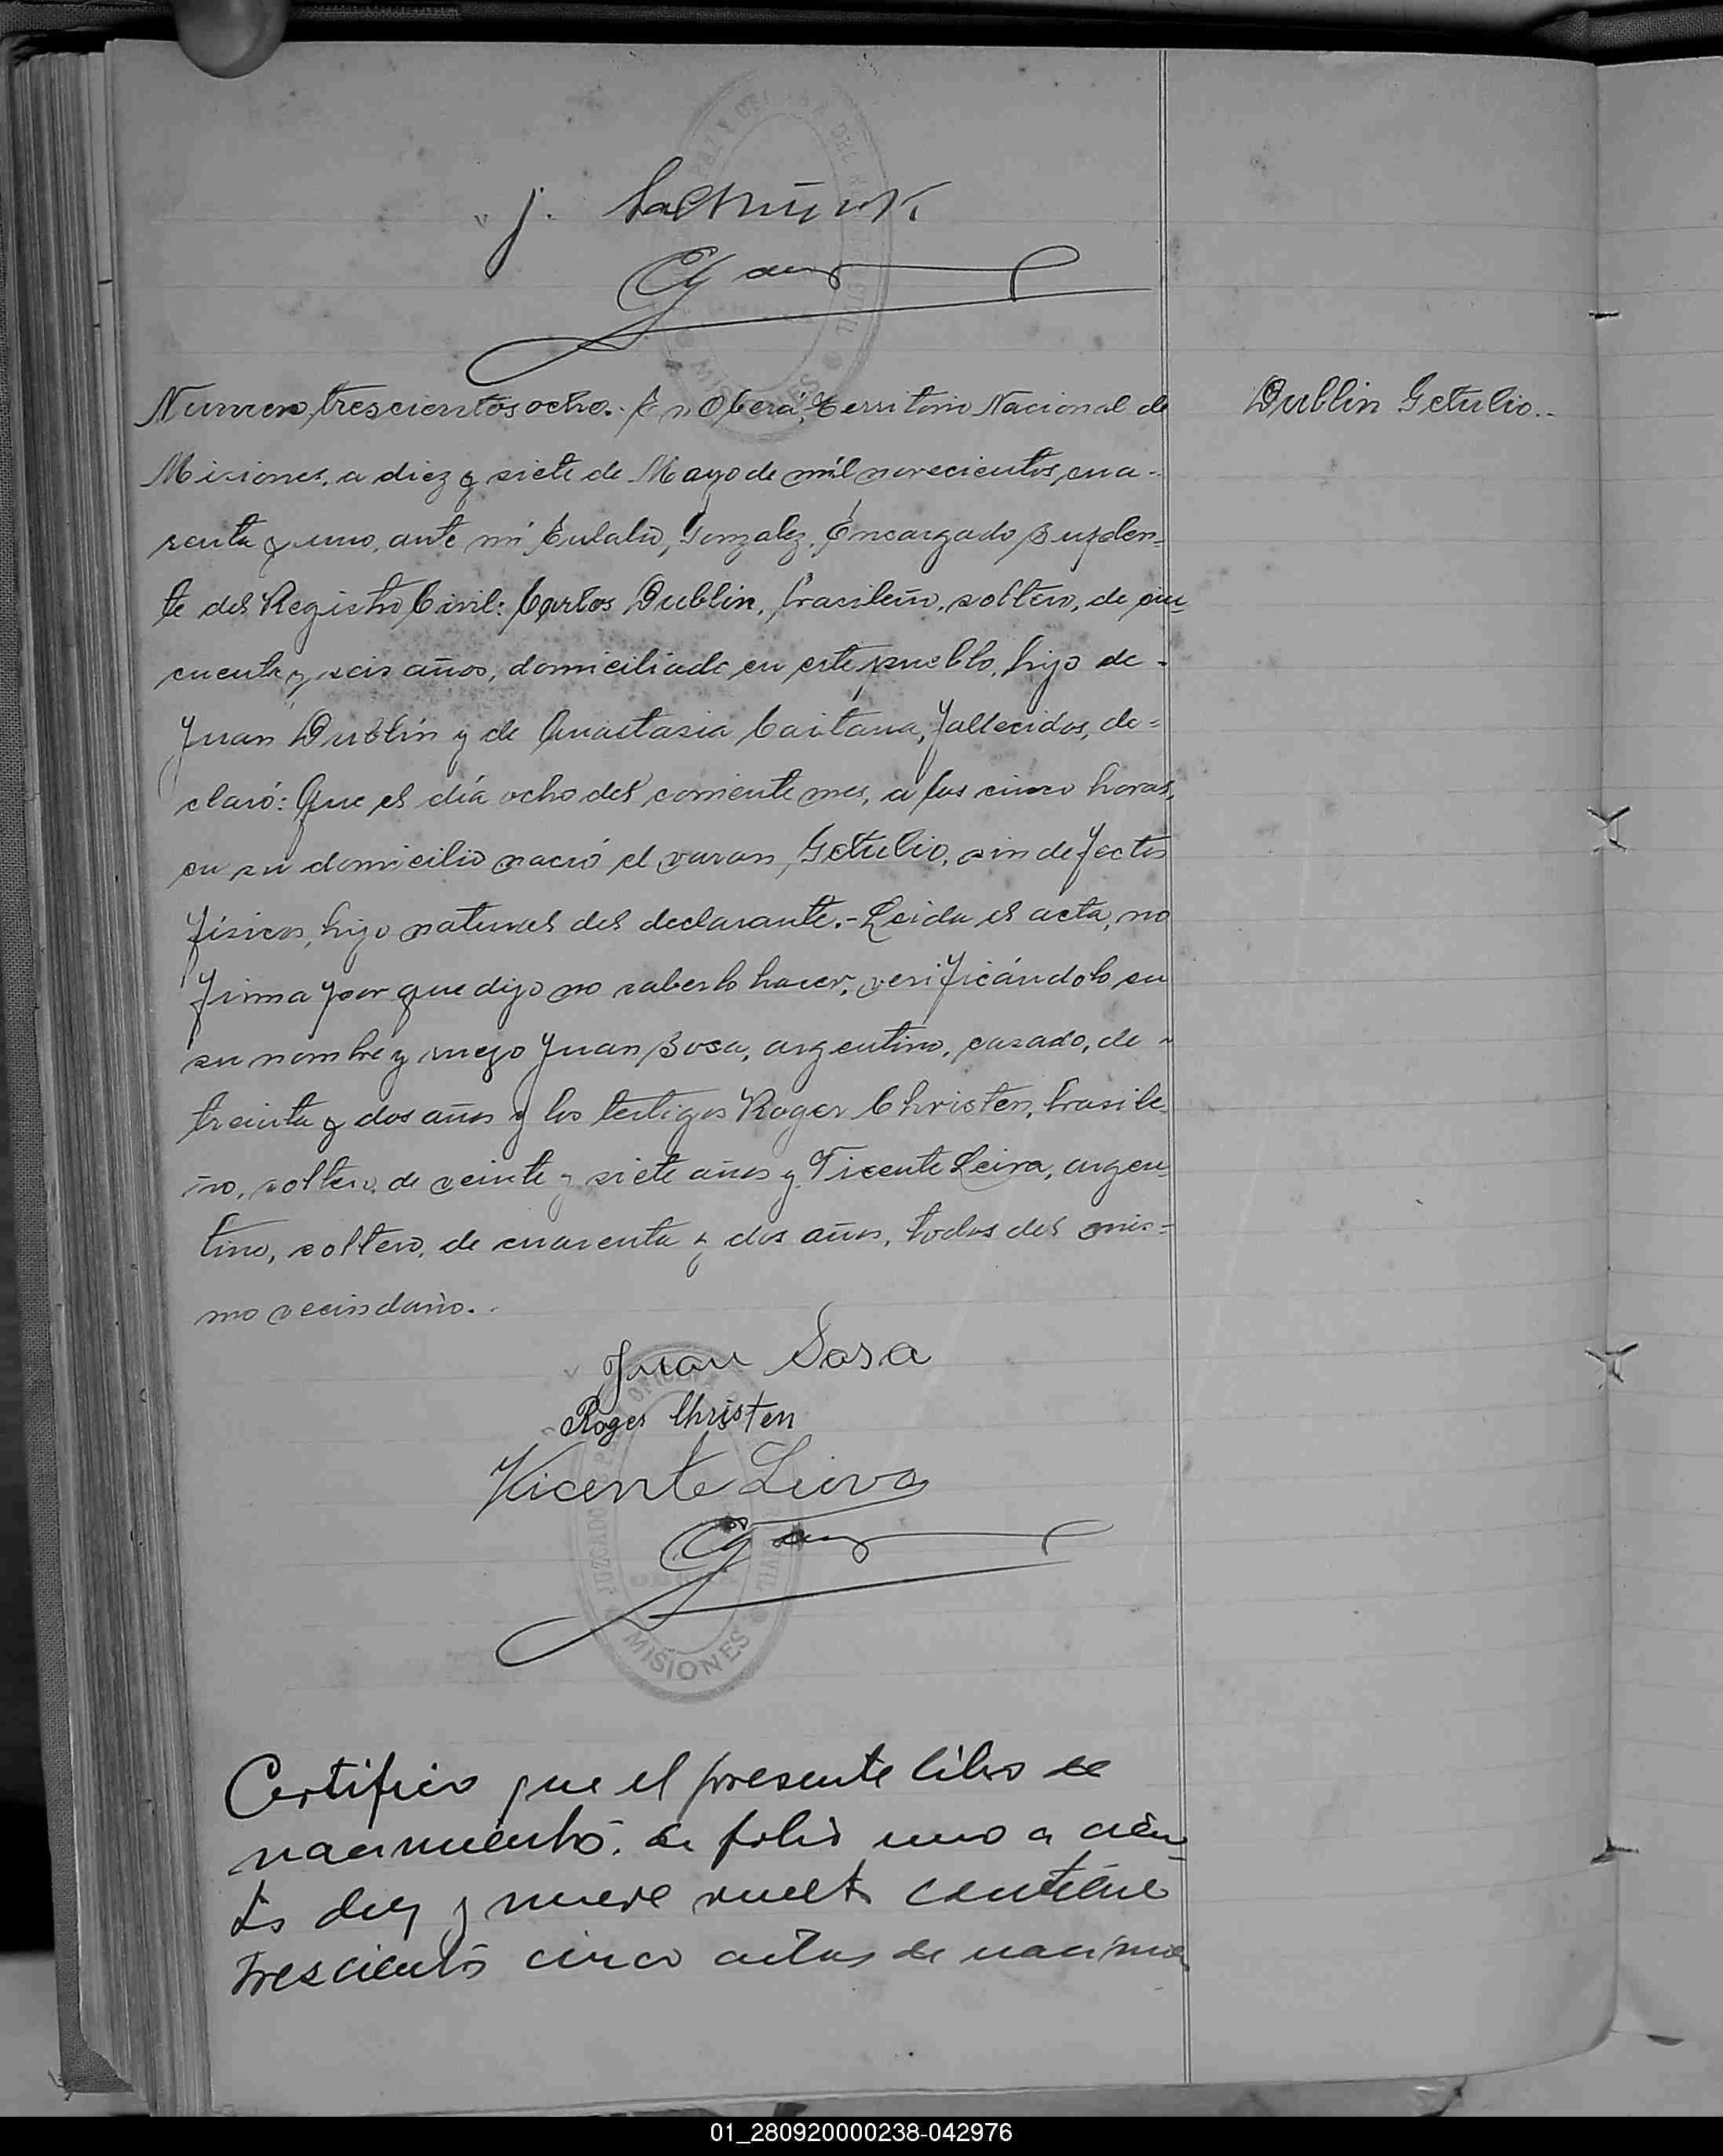 J.
Numero trescientos ocho.- En Oberá, Territorio Nacional de
Dublin Getulio..
Misiones, a diez y siete de Mayo de mil novecientos cua-
renta y uno, ante mí Eulalio Gonzalez, Encargado Suplen=
te del Registro Civil: Carlos Dublin, brasileño, soltero, de cin
cuenta y seis años, domiciliado en este pueblo, hijo de -
Juan Dublin y de Anastasia Caitana, fallecidos, de=
claró: Que el día ocho del corriente mes, a las cinco horas,
en su domicilio nació el varon Getulio, sin defectos
físicos, hijo natural del declarante.- Leida el acta, no
firma por que dijo no saberlo hacer, verificándolo en
su nombre y ruego Juan Sosa, argentino, casado, de -
treinta y dos años y los testigos Roger Christen, brasile
ño, soltero, de veinte y siete años y Vicente Leiva, argen
tino, soltero, de cuarenta y dos años, todos del mis=
mo vecindario..
Juan Sosa
Roger Christen
Vicente Leiva
MISIONES
Certifico que el presente libro de
nacimientos. de folio uno a cien
to diez y nueve vuelto contiene
trescientos cinco actas de nacimien
01_280920000238-042976